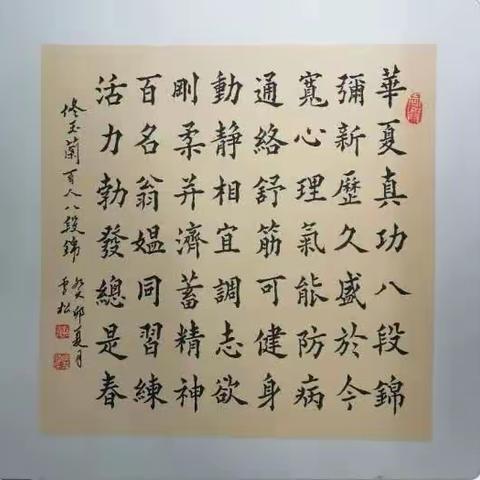 華夏真功八段錦
彌新歷久盛於今
寬心理氣能防病
通絡舒筋可健身
動靜相宜調志欲
剛柔并濟蓄精神
百名翁媼同習練
活力勃發總是春
佟玉蘭百人八段錦
癸卯夏月
雪松